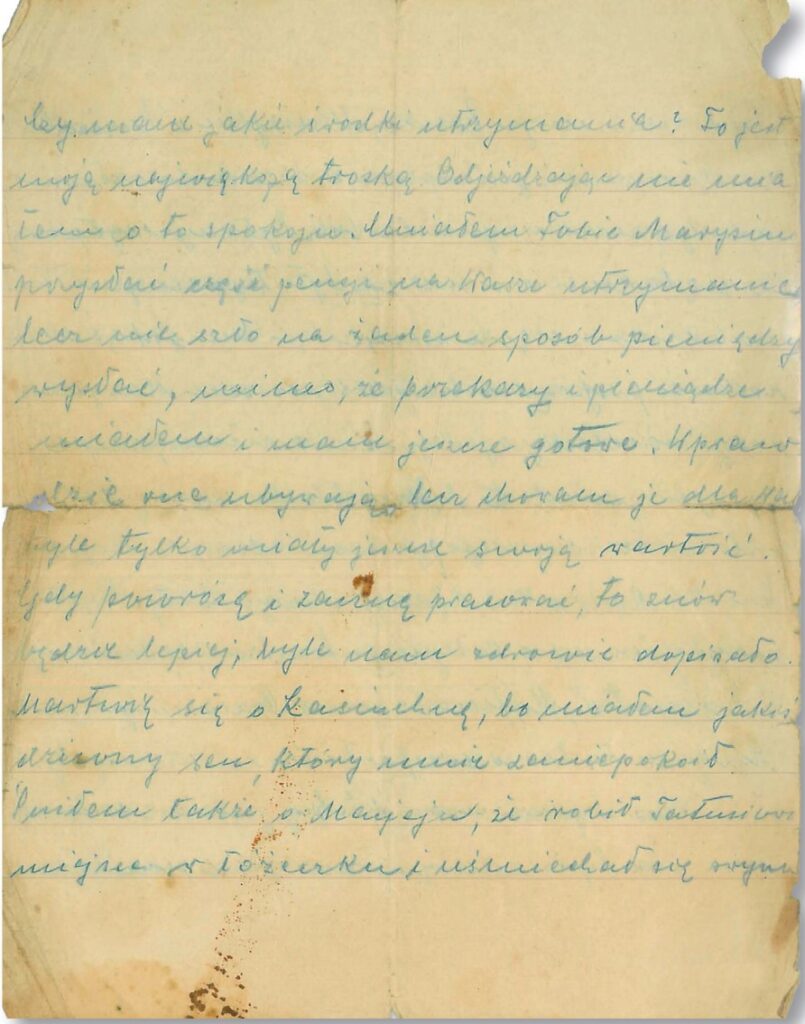 Czy macie jakie środki utrzymania? To jest
moją największą troską Odjeżdżając nie mia
łem o to spokoju. Miałem Tobie Marysiu
przysłać część pensji na Wasze utrzymanie
lecz nie szło na żaden sposób pieniędzy
wysłać, mimo, że przekazy i pieniądze
miałem i mam jeszcze gotowe. Wpraw
dzie nie ubywają, lecz chowam je dla
byle tylko miały jeszcze swoją wartość.
Gdy powrócę i zacznę pracować, to znów
będzie lepiej, byle nam zdrowie dopisało.
Martwię się o, bo miałem jakiś
dziwny sen, który mnie zaniepokoił.
Śniłem także o, że robił Tatusiowi
miejsce w łóżeczku i uśmiechał się